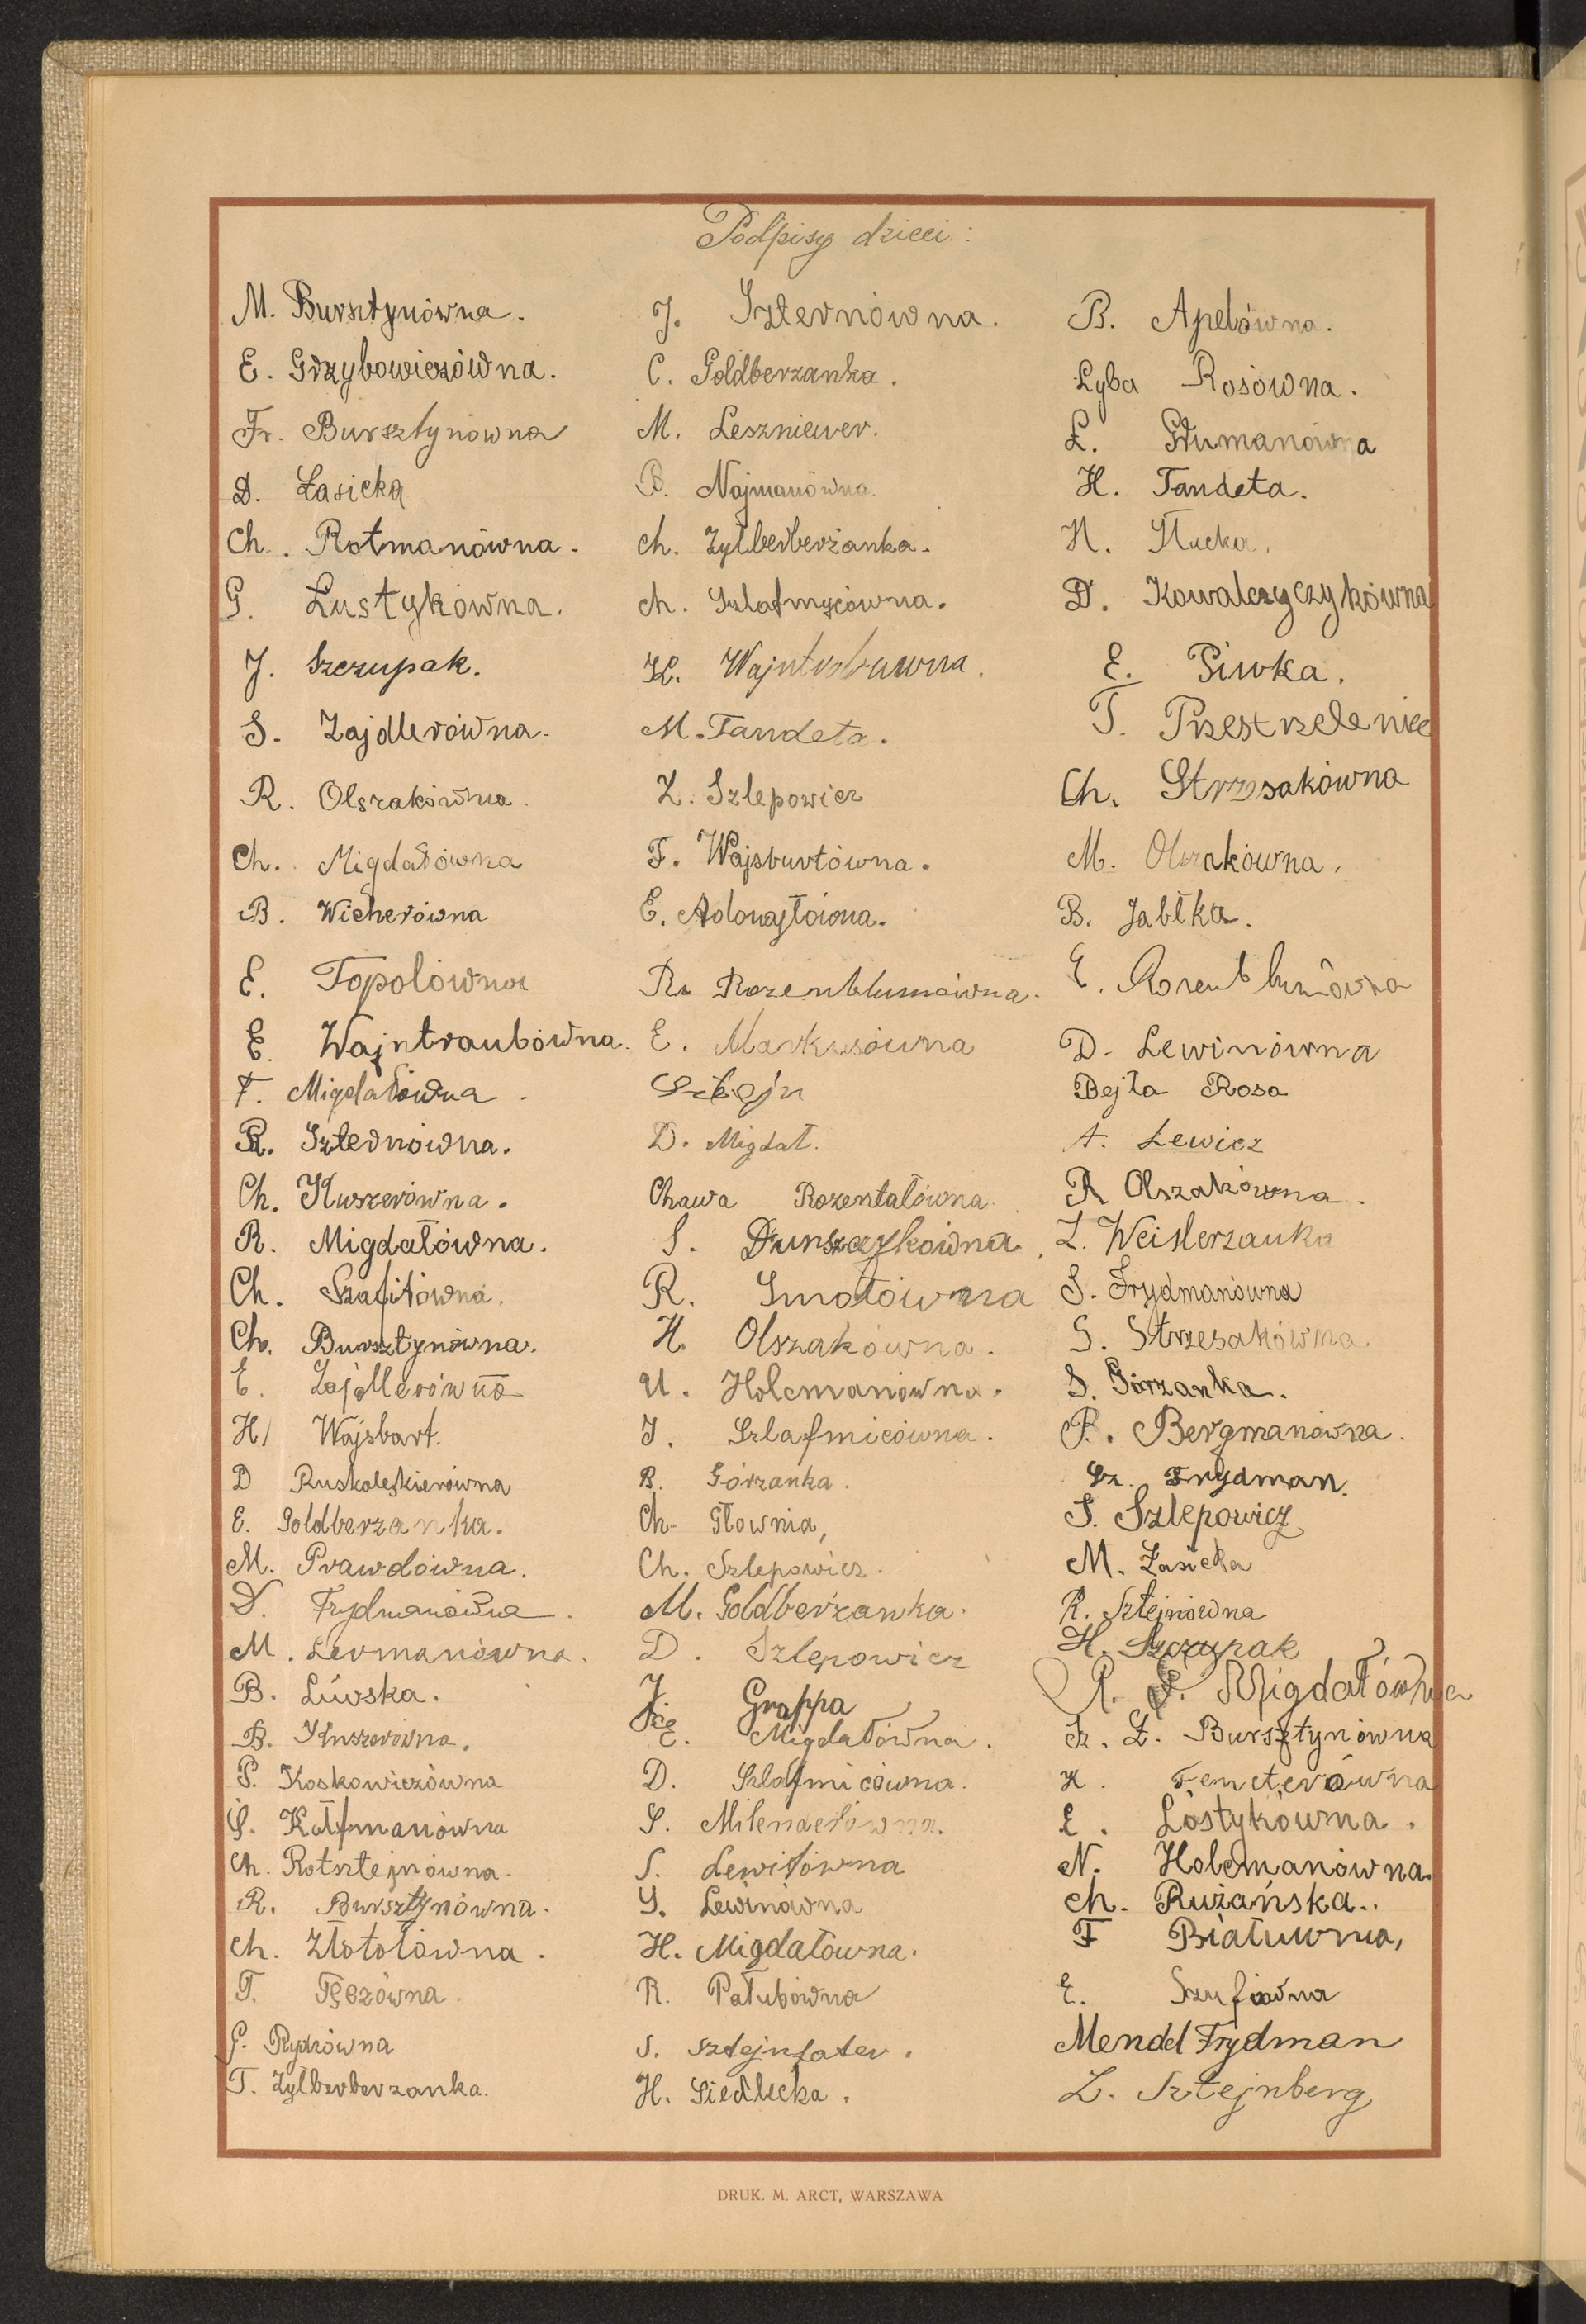 Podpisy dzieci:
M. Bursztynówna.
E. Grzybowiczówna.
Fr. Bursztynówna
D. Łasicka
Ch. Rotmanówna.
G. Lustykówna.
J. Szczupak.
S. Zajdlerówna.
R. Olszakówna.
Ch. Migdałówna
B. Wicherówna
E. Topolówna
E. Wajntraubówna.
F. Migdałówna.
R. Szternówna.
Ch. Kuszerówna.
R. Migdałówna.
Ch. Szafitówna.
Ch. Bursztynówna.
E. Zajdlerówna
H. Wajsbart.
D Ruskoleskierówna
E. Goldberzanka.
M. Prawdówna.
D. Frydmanówna.
M. Lermanówna.
B. Lúwska.
B. Kuszerówna.
P. Koskowiczówna
S. Kałfmanówna
Ch. Rotsztejnówna.
R. Bursztynówna.
Ch. Złototówna.
T. Tęczówna.
G. Rydzówna
T. Zylberberzanka.
J. Szternówna.
C. Goldberzanka.
M. Leszniewer.
B. Najmanówna.
Ch. Zylberberżanka.
Ch. Szlafmycówna.
K.
M. Tandeta.
Z. Szlepowicz
F. Wajsburtówna.
E.
R. Rozenblumówna.
E. Markusówna
D. Migdał.
Chawa Rozentalówna
S. Dunszajkówna.
R. Smołówna
H. Olszakówna.
U. Holcmanówna.
J. Szlafmicówna.
B. Górzanka.
Ch. Głownia,
Ch. Szlepowicz.
M. Goldberżanka.
D. Szlepowicz
J. Grappa
E. Migdałówna.
D. Szlafmicówna.
S. Milenaerówna.
S. Lewitówna
S. Lewinówna
H. Migdałowna.
R. Pałubówna
S. Sztejnsater.
H. Siedlecka.
B. Apelówna.
Łyba Rosówna.
Ł.
H. Tandeta.
H. Kłucka.
D. Kowalczyczykówna
E. Piwka.
T. Przestrzeleniec
Ch. Strzsakówna
M. Olszakówna.
B. Jabłka.
E. Rozenblumówna
D. Lewinówna
Bejła Rosa
A. Lewicz
R Olszakówna.
Z. Weislerzanka
S. Frydmanówna
S. Strzesakówna.
S. Górzanka.
P. Bergmanówna.
Sz. Frydman.
S. Szlepowicz
M. Łasicka
R. Sztejnówna
H. Szczupak
R. S. Migdałówna
Sz. Ł. Bursztynówna
H. Fencterówna
E. Lóstykówna.
N. Holcmanówna.
Ch. Rużańska..
F Białuwna,
E. Szufówna
Mendel Frydman
Z. Sztejnberg
DRUK. M. ARCT, WARSZAWA